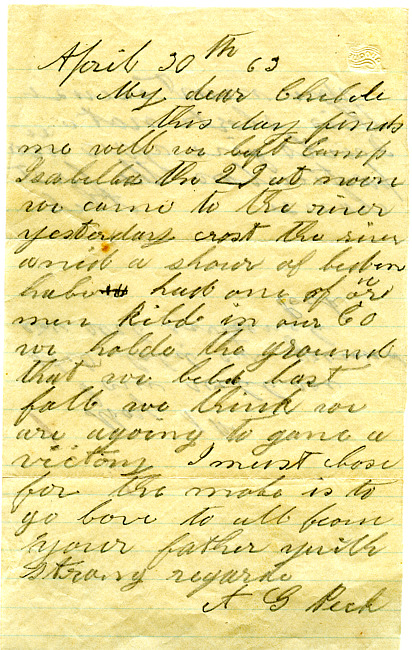 April 30th 63
My dear Childe
this day finds
me well we left Camp
Isabella the 29 at noon
we came to the river
yesterday crost the river
amid a shour of
had one of our
men kilde in our Co
we holde the ground
that we held last
fall we think we
are agoing to gane a
victory I must close
for the male is to
go love to all from
your father with
strong regards
A G Peck